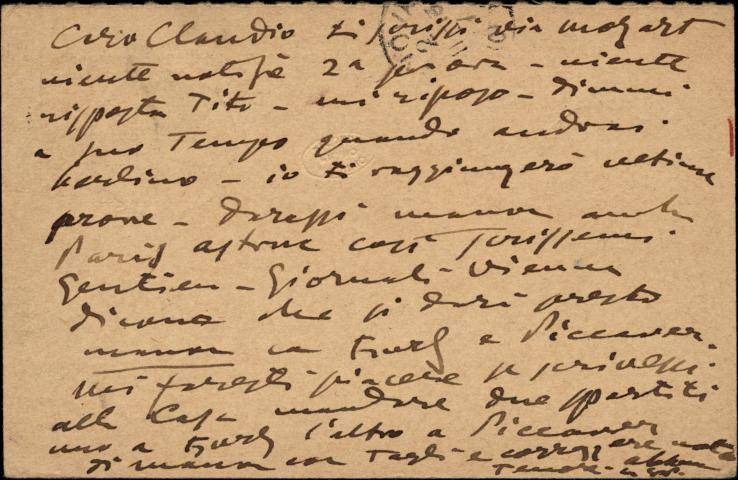 Caro Claudio ti scrissi via mozart
niente notizie 2a prova - niente
risposta Tito - mi riposo - dimmi
a suo Tempo quando andrai
Berlino - io ti raggiungerò ultime
prove - Darassi manon anche
Paris così scrissemi
Gentien - Giornali - Vienna
dicono che si darà presto
manon con e Piccaver.
mi faresti piacere se scrivessi
alla Casa mandare due spartiti
uno a l'altro a Piccaver
di manon con Tagli e correggere
Tenore